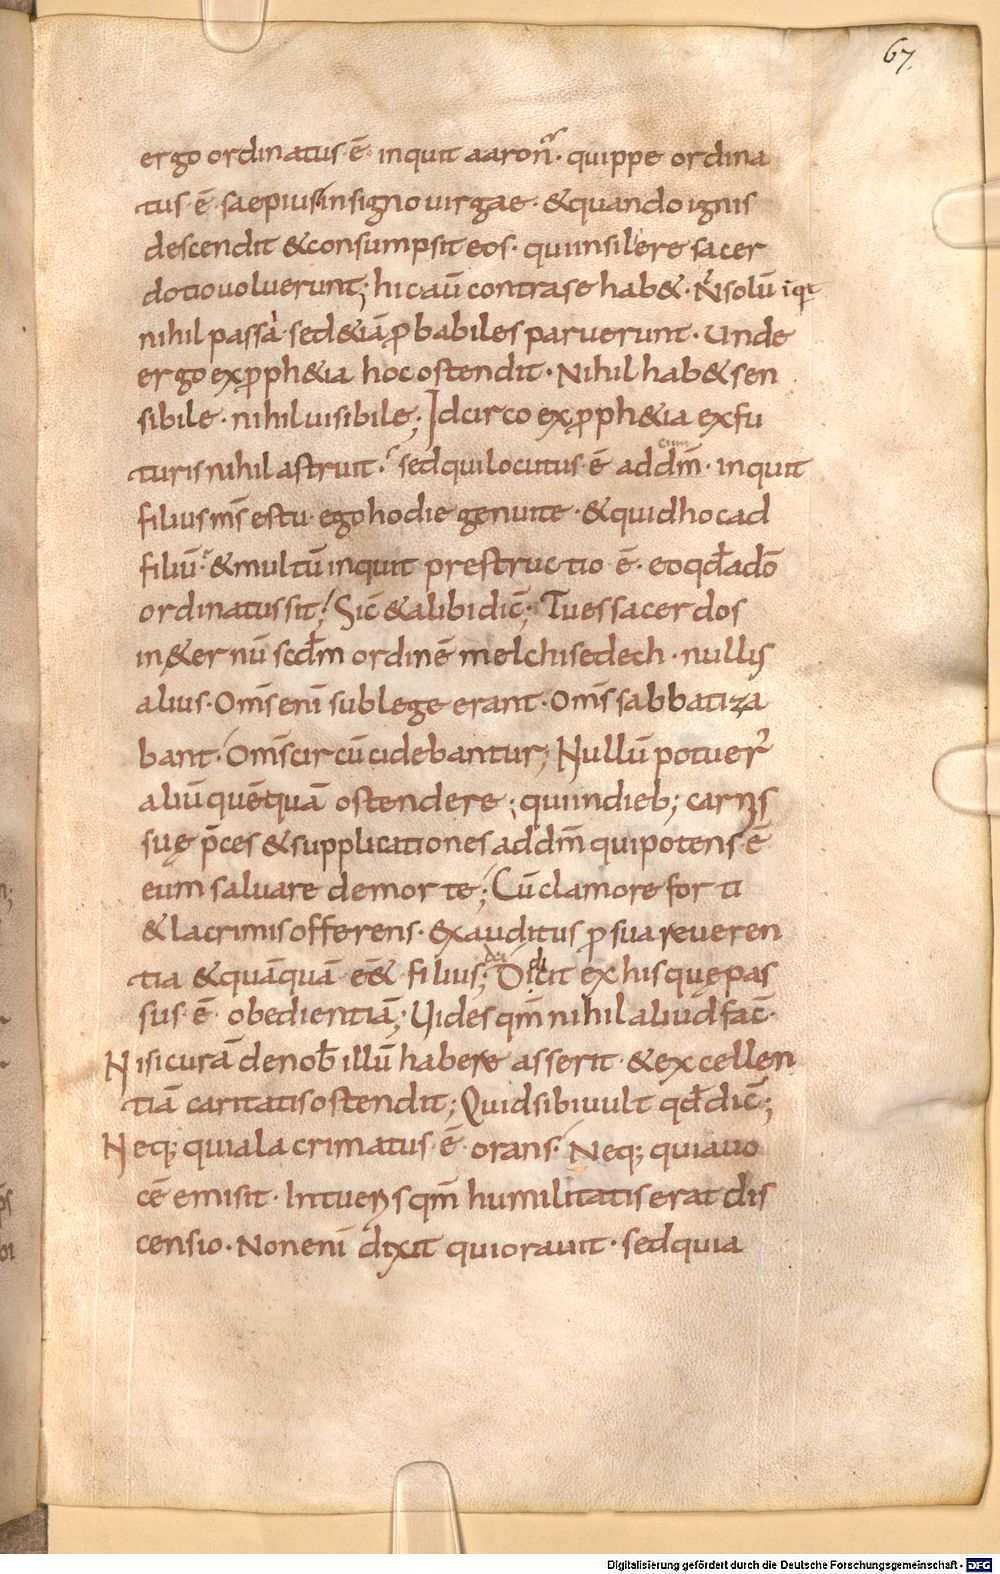 67.
ergo ordinatus·ē· inquit aaron̄· quippe ordina
tus·ē· saepius in signo uirgae· &quando ignis
descendit &consumpsit eos· qui insilere sacer
dotio uoluerunt; hic aū contra se hab&· N̄ solū
nihil passa· sed &iā ꝓbabiles paruerunt· Unde
ergo ex ꝓph&ia hoc ostendit· Nihil hab& sen
sibile· nihil uisibile; Idcirco ex ꝓph&ia ex fu
cum
turis nihil astruit· sed qui locutus·ē· ad dm̄· inquit
filius ms̄ es tu ego hodie genui te· &quid hoc ad
filiū· &multū inquit prestructio·ē· eo qd̄ a dō
ordinatus sit; Sic̄ &alibi dic̄; Tu es sacerdos
in &ernū scd̄m ordinē melchisedech· nullus
alius· Oms̄ eni sub lege erant· Oms̄ sabbatiza
bant· Oms̄ circūcidebantur; Nullū potuer̄
aliū quēquā ostendere; qui in dieb; carnis
suę p̄ces &supplicationes ad dm̄ qui potens·ē
eum saluare de morte; Cū clamore forti
&lacrimis offerens· exauditus ꝓ sua reueren
tia &quāquā e&̄ filius; di Dicit ex his quę pas
sus·ē· obedientiā; Uides qm̄ nihil aliud fac̄·
Nisi curā de nob̄ illū habere asserit· &excellen
tiā caritatis ostendit; Quid sibi uult qd̄ dic̄;
Neq; quia lacrimatus·ē· orans· Neq; quia uo
cē emisit· Intuens qm̄ humilitatis erat dis
censio· Non enī dixit qui orauit· sed quia
Digitalisierung gefördert durch die Deutsche Forschungsgemeinschaft - DFG